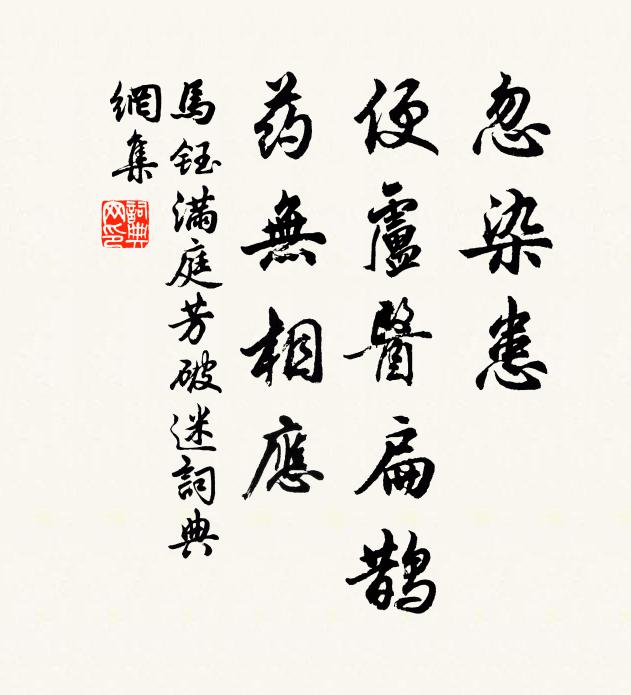 忽染患
便盧醫扁鵲
药無相應
馬鈺滿庭芳破迷詞典
網集
詞典
网印